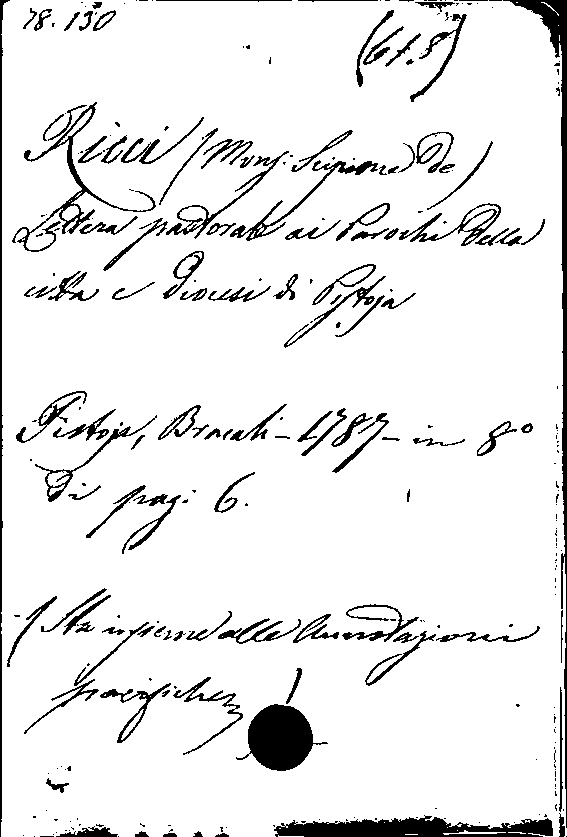 78. 130
(67.8)
Ricci (Mons: Scipione De)
Lettera pastorale ai Parochi Della
città e Diocesi di Pistoja
Pistoja, Bracali - 1787 - in 8º
Di pag: 6.
(Sta insieme alle Annotazioni
pacifiche)